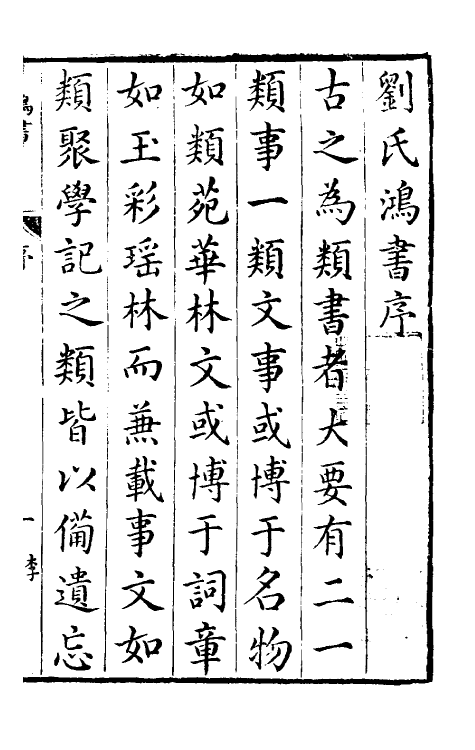 劉氏鴻書序
古之為類書者大要有二一
類事一類文事或博于名物
如類苑華林文或博于詞章
如玉彩瑶林而蕪載事文如
類聚學記之類皆以備遺忘
鴻書
序
一
李